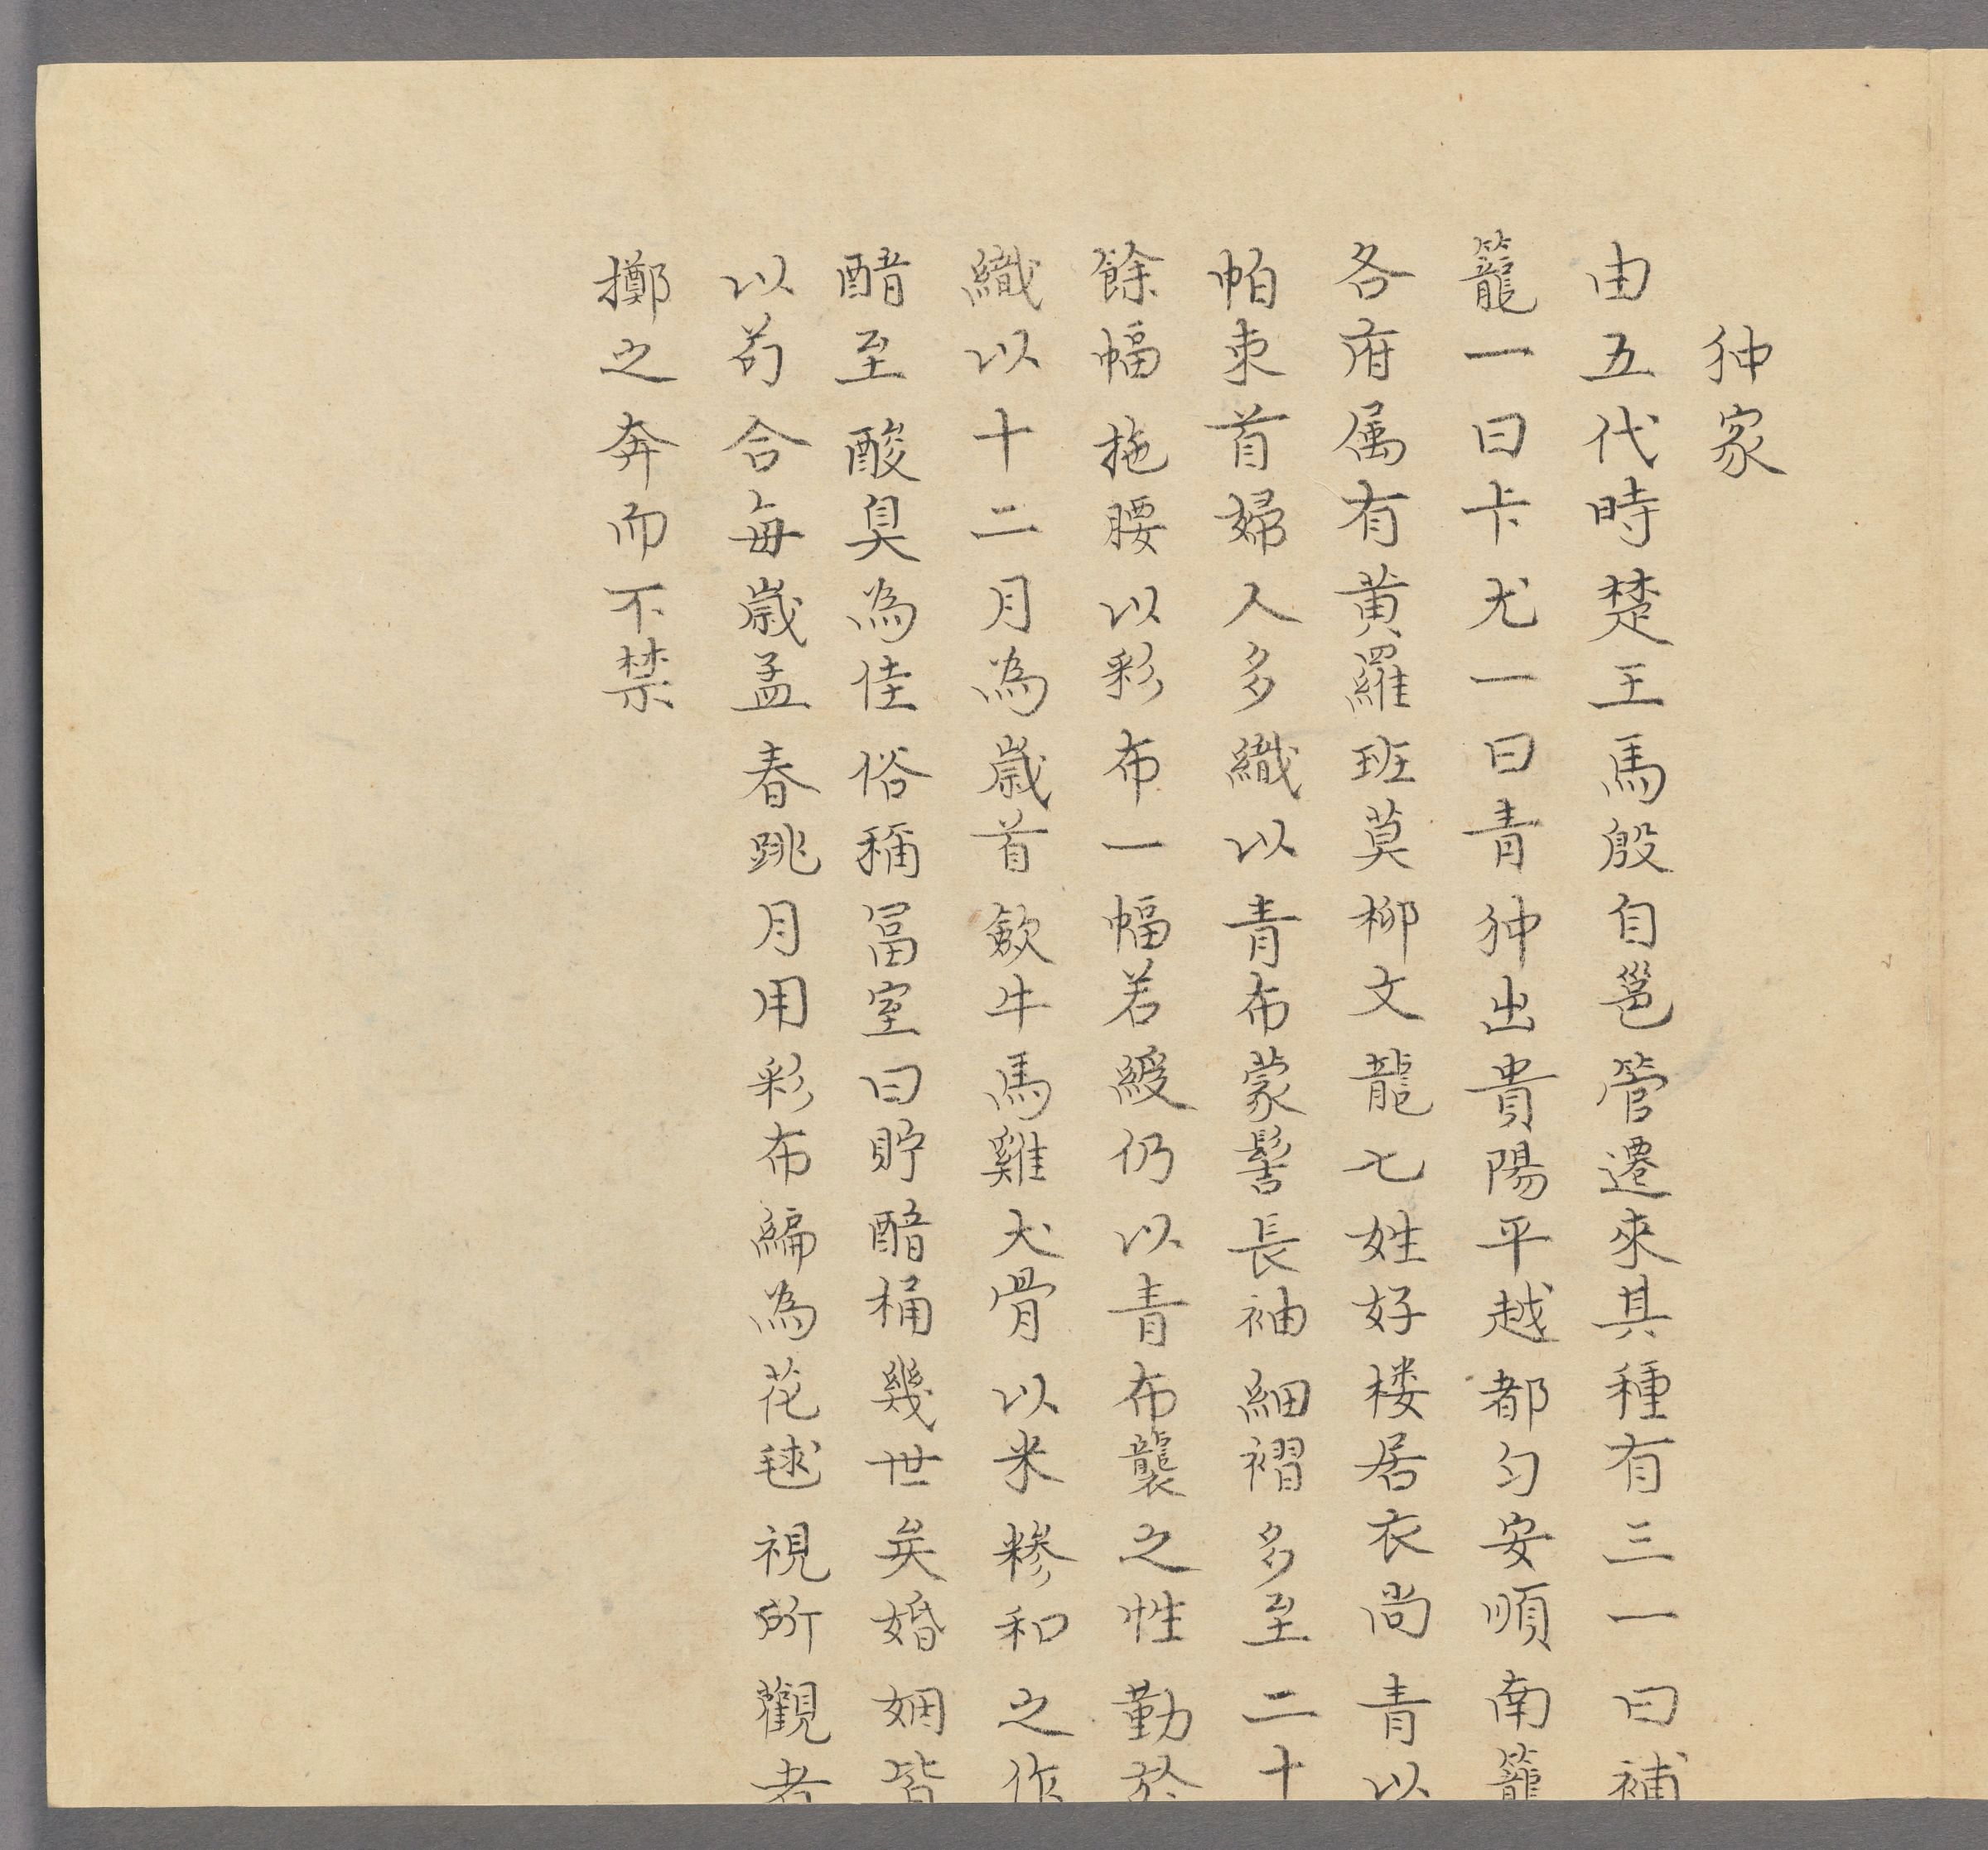 狆家
由五代時楚王馬殷自邕管遷來其種有三一曰補
籠一曰卡尤一曰青狆出貴陽平越都勻安順南籠
各府属有黄羅班莫柳文龍七姓好楼居衣尚青以
帕束首婦人多織以青布蒙髻長袖細褶多至二十
餘幅拖腰以彩布一幅若綬仍以青布襲之性勤於
織以十二月為歲首歛牛馬雞犬骨以米糝和之作
醋至酸臭為佳俗稱冨室曰貯醋桶幾世矣婚姻皆
以苟合每歲孟春跳月用彩布編為花毬視所觀者
擲之奔而不禁